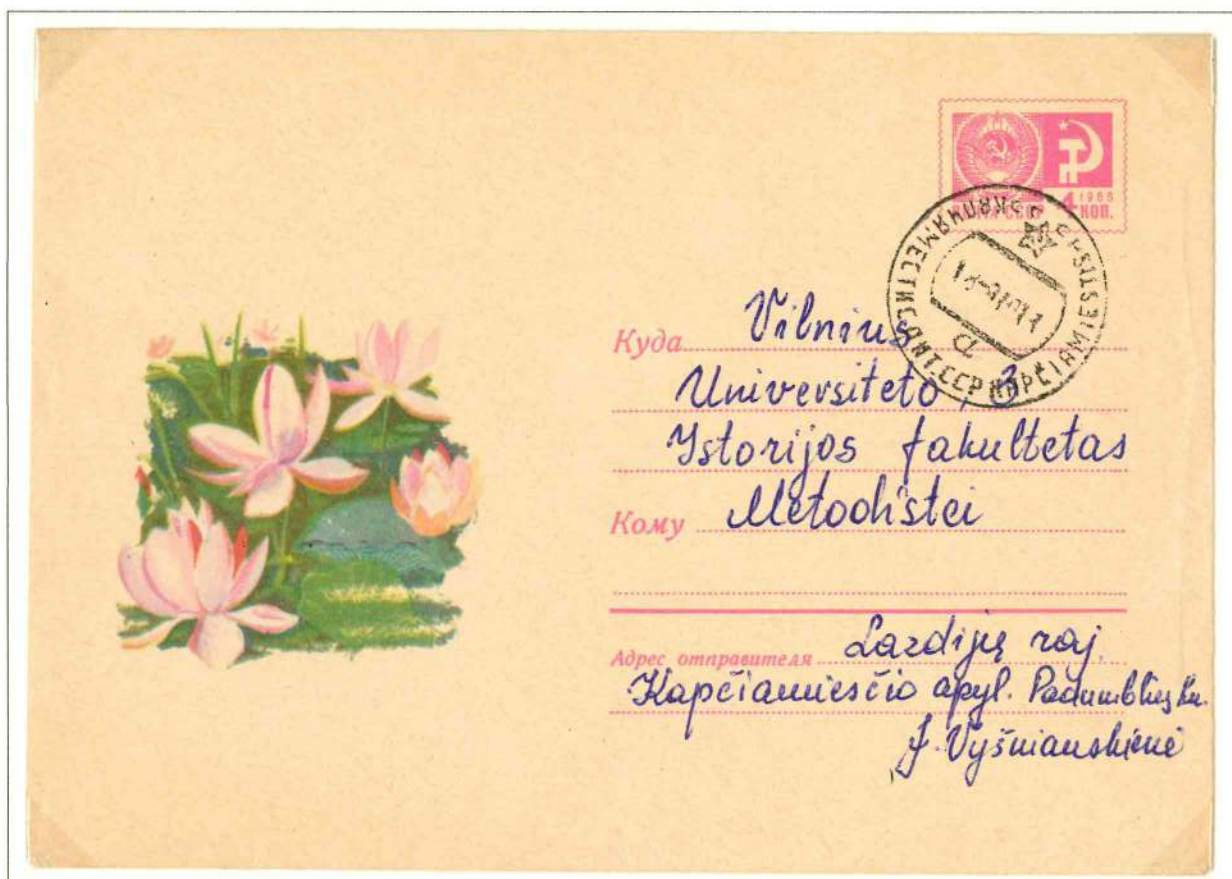 ПОЧТА СССР 4 КОП.
1966
КАПЧЯМЕСТИС ЛИТ. ССР KAPČIAMIESTIS
Куда Vilnius
Universiteto, 3
Istorijos fakultetas
Кому Metodistei
Адрес отправителя Lazdijų raj.
Kapčiamiesčio apyl. Padumblių km.
J. Vyšniauskienė